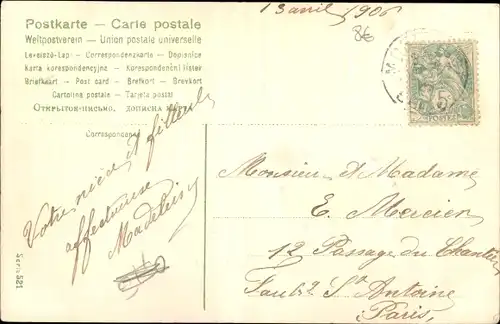 13 avril 1906
8€
Postkarte — Carte postale
Weltpostverein — Union postale universelle
Levelező-Lap — Correspondenzkarte — Dopisnice
Karta korespondencyjna — Korespondenční lístek
Briefkaart — Post card — Brefkort — Brevkort
Cartolina postale — Tarjeta postal
Открытое письмо,
Correspondenz
Votre nièce et filleule
affectueuse
Madeleine
Monsieur et Madame
E. Mercier
12 Passage du Chantier
Faub.g St Antoine
Paris.
Serie 521
5